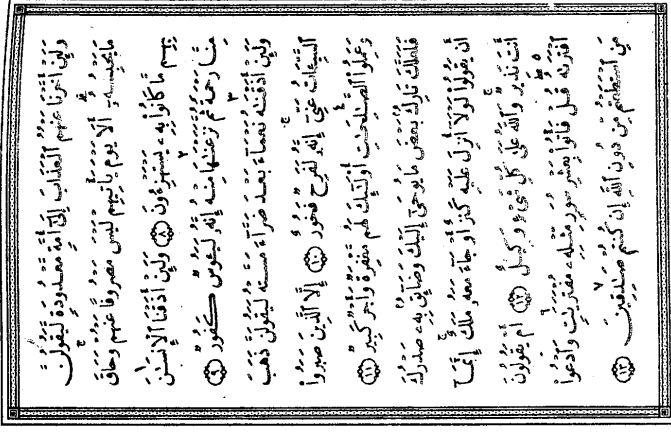 وَلَئِنْ أَخَّرْنَا عَنْهُمُ ٱلْعَذَابَ إِلَىٰٓ أُمَّةٍ مَّعْدُودَةٍ لَّيَقُولُنَّ
مَا يَحْبِسُهُۥٓ ۗ أَلَا يَوْمَ يَأْتِيهِمْ لَيْسَ مَصْرُوفًا عَنْهُمْ وَحَاقَ
بِهِم مَّا كَانُوا۟ بِهِۦ يَسْتَهْزِءُونَ ﴿٨﴾ وَلَئِنْ أَذَقْنَا ٱلْإِنسَٰنَ
مِنَّا رَحْمَةً ثُمَّ نَزَعْنَٰهَا مِنْهُ إِنَّهُۥ لَيَـُٔوسٌ كَفُورٌ ﴿٩﴾
وَلَئِنْ أَذَقْنَٰهُ نَعْمَآءَ بَعْدَ ضَرَّآءَ مَسَّتْهُ لَيَقُولَنَّ ذَهَبَ
ٱلسَّيِّـَٔاتُ عَنِّىٓ ۚ إِنَّهُۥ لَفَرِحٌ فَخُورٌ ﴿١٠﴾ إِلَّا ٱلَّذِينَ صَبَرُوا۟
وَعَمِلُوا۟ ٱلصَّٰلِحَٰتِ أُو۟لَٰٓئِكَ لَهُم مَّغْفِرَةٌ وَأَجْرٌ كَبِيرٌ ﴿١١﴾
فَلَعَلَّكَ تَارِكٌۢ بَعْضَ مَا يُوحَىٰٓ إِلَيْكَ وَضَآئِقٌۢ بِهِۦ صَدْرُكَ
أَن يَقُولُوا۟ لَوْلَآ أُنزِلَ عَلَيْهِ كَنزٌ أَوْ جَآءَ مَعَهُۥ مَلَكٌ ۚ إِنَّمَآ
أَنتَ نَذِيرٌ ۚ وَٱللَّهُ عَلَىٰ كُلِّ شَىْءٍ وَكِيلٌ ﴿١٢﴾ أَمْ يَقُولُونَ
ٱفْتَرَىٰهُ ۖ قُلْ فَأْتُوا۟ بِعَشْرِ سُوَرٍ مِّثْلِهِۦ مُفْتَرَيَٰتٍ وَٱدْعُوا۟
مَنِ ٱسْتَطَعْتُم مِّن دُونِ ٱللَّهِ إِن كُنتُمْ صَٰدِقِينَ ﴿١٣﴾